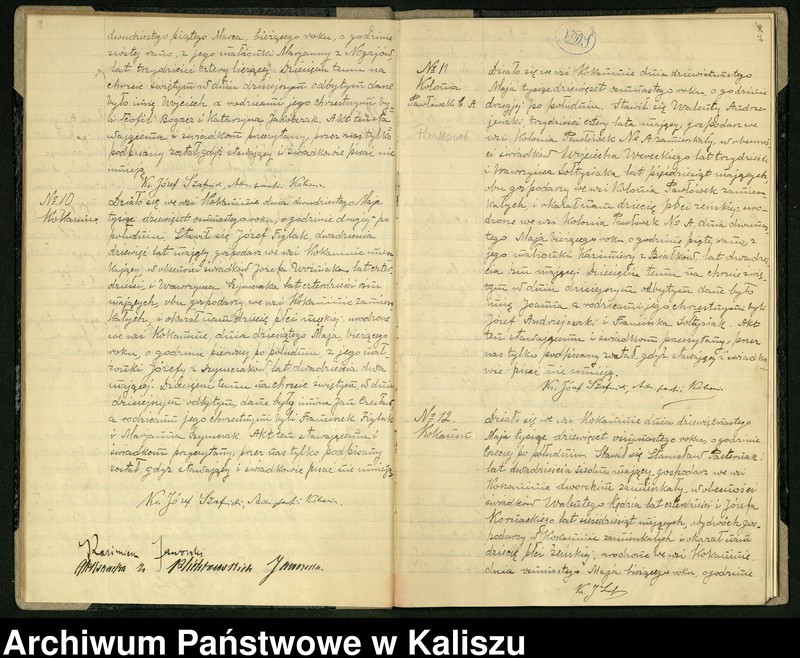 dwudziestego piątego Marca, bieżącego roku, o godzinie
szóstej rano, z jego małżonki Marjanny z Nogajów
lat trzydzieści cztery liczącej. Dziecięciu temu na
chrzcie świętym w dniu dzisiejszym odbytym dane
było imię Wojciech a rodzicami jego chrzestnymi by-
li Teofil Bogacz i Katarzyna Jakubczak. Akt ten sta-
wającemu i świadkom przeczytany, przez nas tylko
podpisany został gdyż stawający i świadkowie pisać nie
umieją
Ks. Józef Szafnicki
№ 10
Kokanin
Działo się we wsi Kokaninie dnia dwudziestego Maja
tysiąc dziewięćset ósmnastego roku, o godzinie drugiej po
południu. Stawił się Józef Fiślak, dwadzieścia
dziewięć lat mający gospodarz we wsi Kokaninie miesz-
kający, w obecności świadków Józefa Woźniaka lat czter-
dzieści i Wawrzyńca Szymczaka lat czterdzieści ośm
mających, obu gospodarzy we wsi Kokaninie zamiesz-
kałych, i okazał nam dziecię płci męskiej, urodzone
we wsi Kokaninie, dnia dziesiątego Maja, bieżącego
roku, o godzinie pierwszej po południu z jego mał-
żonki Józefy z Szymczaków lat dwadzieścia dwa
mającej. Dziecięciu temu na chrzcie świętym, w dniu
dzisiejszym odbytym, dane były imiona Jan Czesław
a rodzicami jego chrzestnymi byli Franciszek Fiślak
i Marjanna Szymczak. Akt ten stawającemu i
świadkom przeczytany, przez nas tylko podpisany
został, gdyż stawający i świadkowie pisać nie umieją
Ks. Józef Szafnicki
Kazimierz Jaworski
Jaworska.
№ 11
Kolonia
Pawłówek l. A
Pawłówek
Działo się we wsi Kokaninie dnia dziewiętnastego
Maja tysiąc dziewięćset ósmnastego roku, o godzinie
drugiej po południu. Stawił się Walenty Andrze-
jewski, trzydzieści cztery lata mający, gospodarz we
wsi Kolonia Pawłówek № A zamieszkały, w obecnoś-
ci świadków Wojciecha Wereckiego lat trzydzieści
i Wawrzyńca Sołtysiaka lat pięćdziesiąt mających
obu gospodarzy we wsi Kolonia Pawłówek zamiesz-
kałych, i okazał nam dziecię płci żeńskiej, uro-
dzone we wsi Kolonia Pawłówek № A, dnia dwunas-
tego Maja bieżącego roku, o godzinie piątej rano, z
jego małżonki Kazimiery z Białków, lat dwadzie-
ścia mającej. Dziecięciu temu na chrzcie świę-
tym w dniu dzisiejszym odbytym dane było
imię Joanna a rodzicami jego chrzestnymi byli
Józef Andrzejewski i Franciszka Sołtysiak. Akt
ten stawającemu i świadkom przeczytany, przez
nas tylko podpisany został, gdyż stawający i świadko-
wie pisać nie umieją.
Ks. Józef Szafnicki
№ 12.
Kokanin
Działo się we wsi Kokaninie dnia dziewiętnastego
Maja tysiąc dziewięćset ósmnastego roku, o godzinie
trzeciej po południu. Stawił się Stanisław Pasternak
lat dwadzieścia siedm mający, gospodarz we wsi
Kokaninie dworskim zamieszkały, w obecności
świadków Walentego Kędzia lat czterdzieści i Józefa
Kornackiego lat sześćdziesiąt mających, wyrobników gos-
podarzy w Kokaninie zamieszkałych i okazał nam
dziecię płci żeńskiej, urodzone we wsi Kokaninie
dnia ósmnastego Maja bieżącego roku, o godzinie
Archiwum Państwowe w Kaliszu